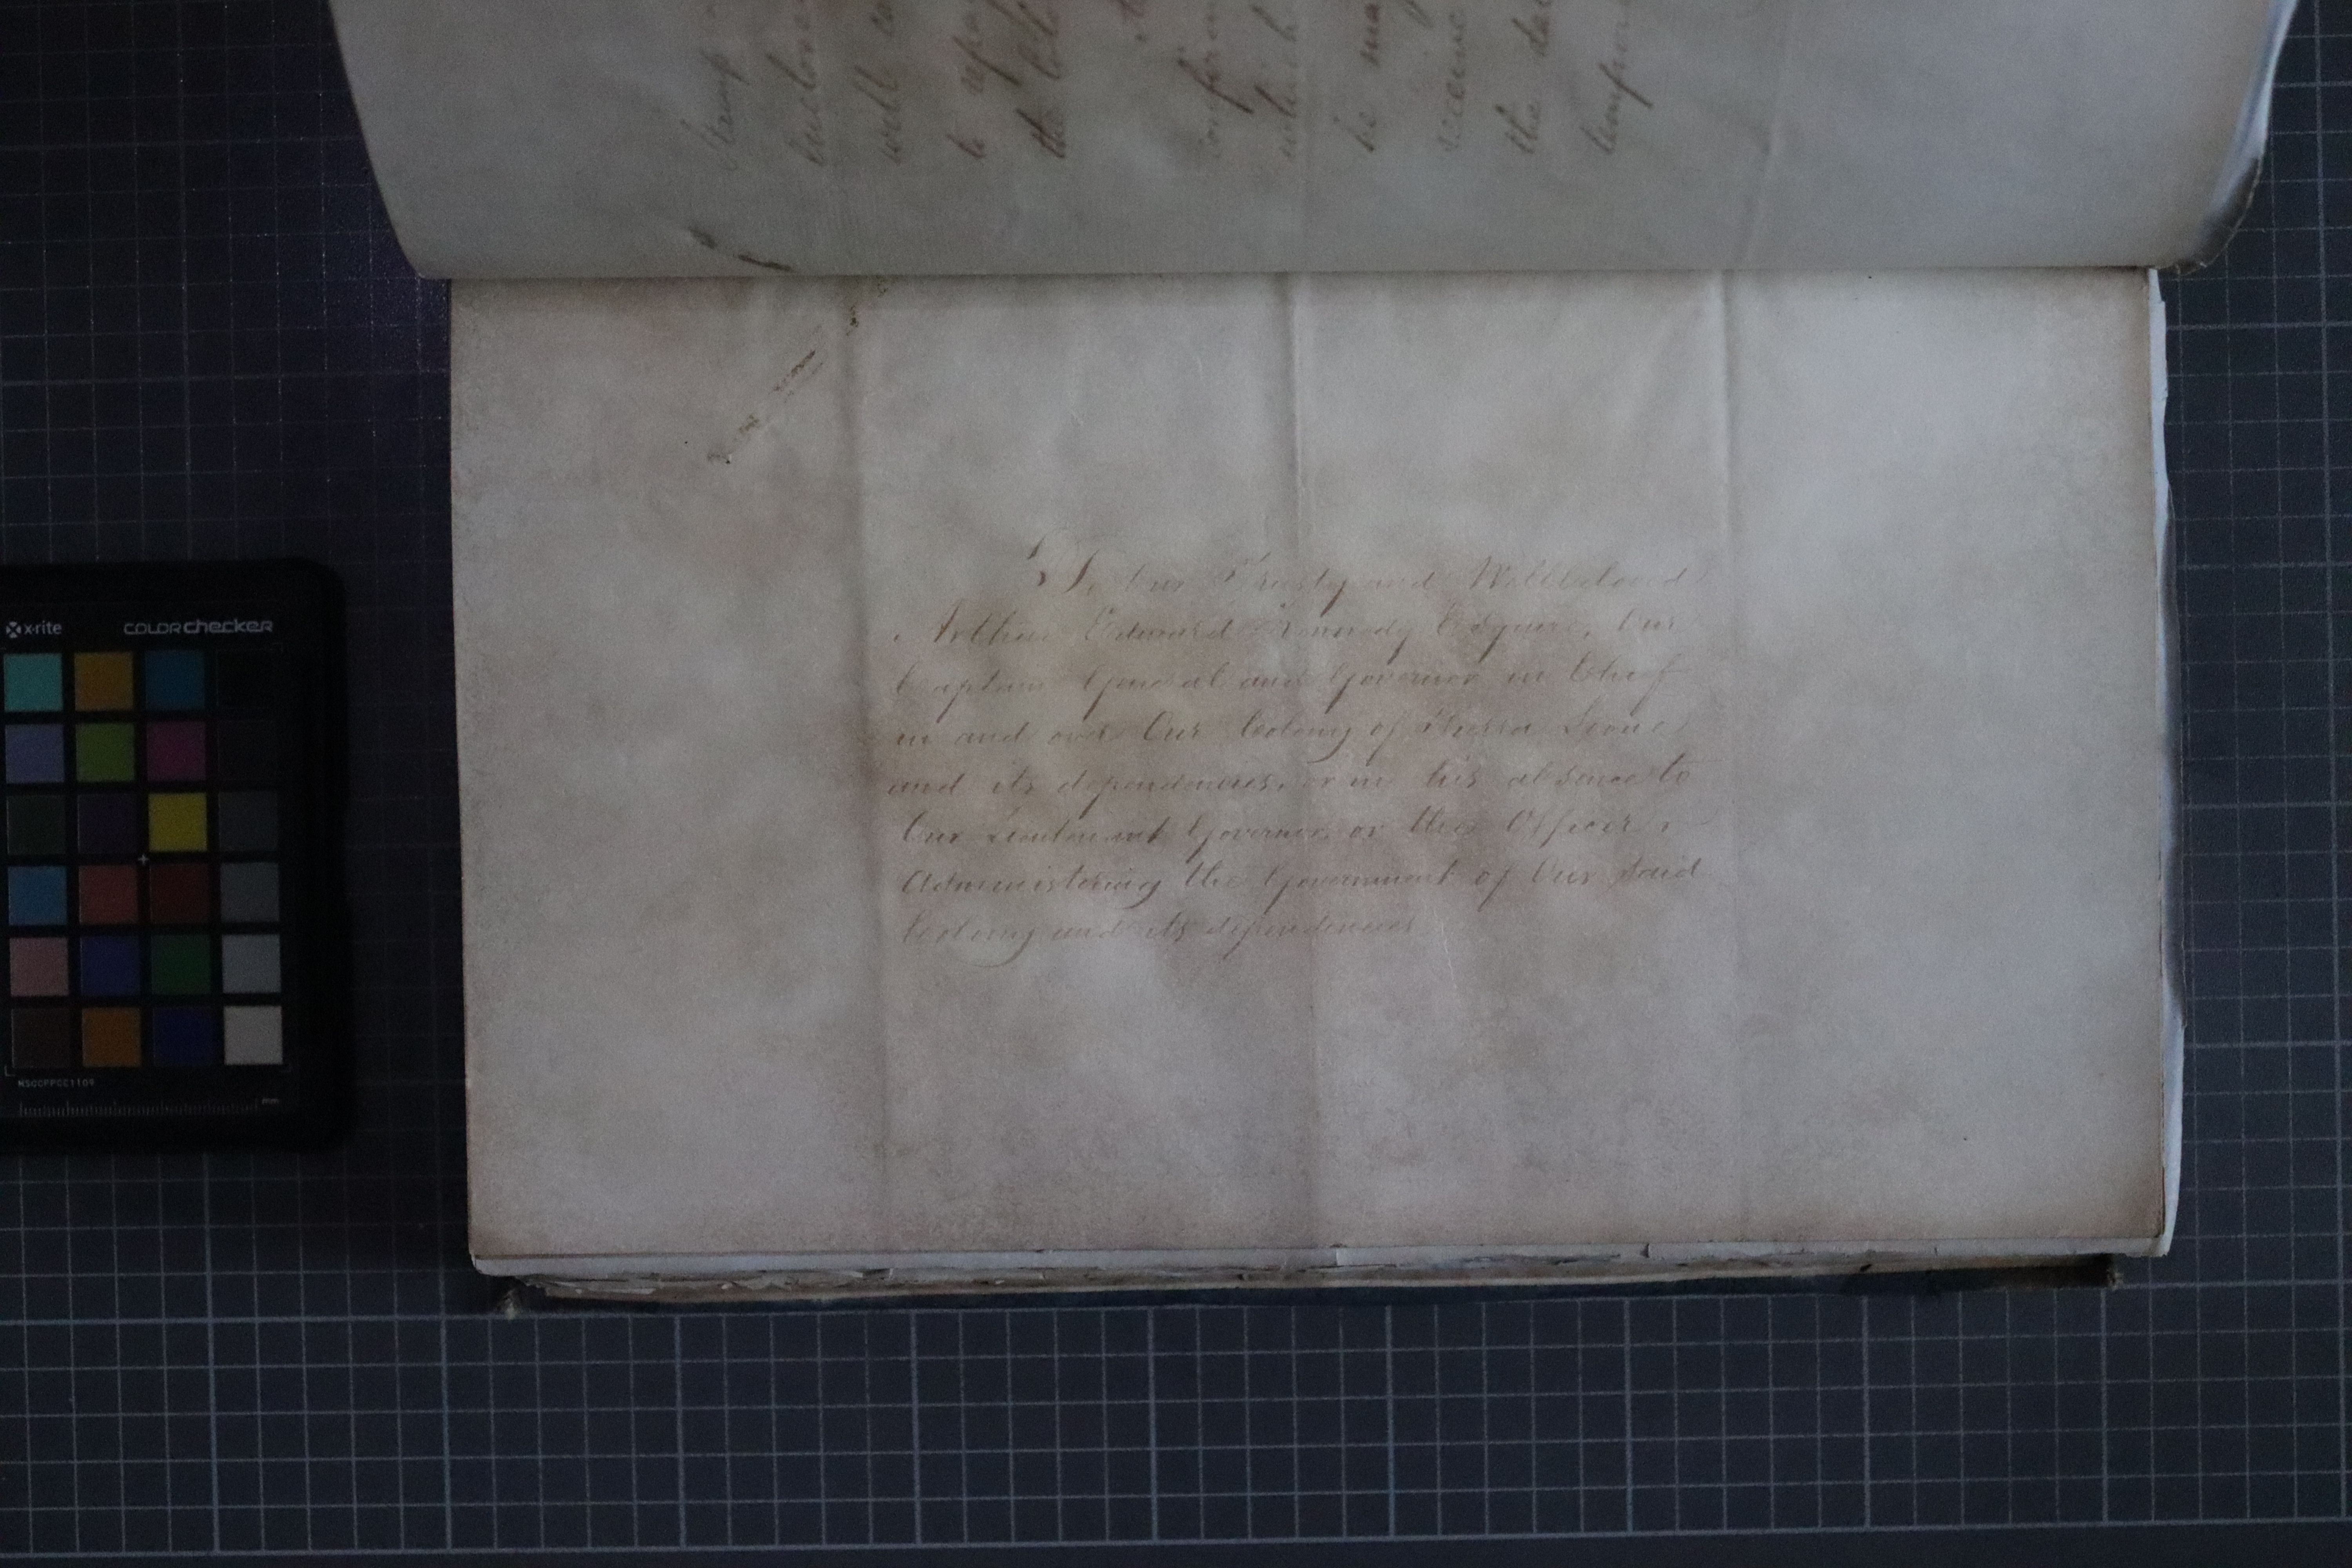 To Our Trusty and Wellbeloved
Arthur Edward Kennedy Esquire, Our
Captain General and Governor in Chief
in and over Our Colony of Sierra Leone
and its dependencies, or in his absence to
Our Lieutenant Governor or the Officer
Administering the Government of Our said
Colony and its dependencies
enclose
well
to
the
which
he
the
x-rite colorchecker
MSCCPPCC1109
mm